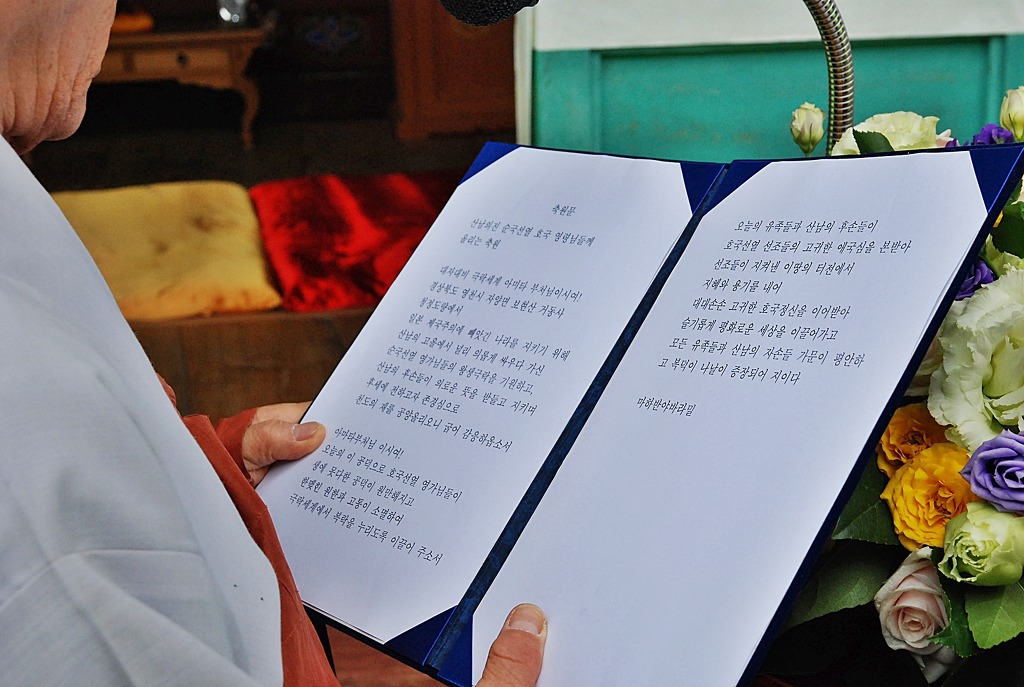 축원문
산남의진 순국선열 호국 영령님들께
올리는 축원
대자대비 극락세계 아미타 부처님이시여!
경상북도 영천시 자양면 보현산 거동사
청정도량에서
일본 제국주의에 빼앗긴 나라를 지키기 위해
산남의 고을에서 널리 의롭게 싸우다 가신
순국선열 영가님들의 왕생극락을 기원하고,
산남의 후손들이 의로운 뜻을 받들고 지키며
후세에 전하고자 존경심으로
천도의 재를 공양올리오니 굽어 감응하옵소서
아미타부처님 이시여!
오늘의 이 공덕으로 호국선열 영가님들이
생에 못다한 공덕이 원만해지고
한맺힌 원한과 고통이 소멸하여
극락세계에서 복락을 누리도록 이끌어 주소서
오늘의 유족들과 산남의 후손들이
호국선열 선조들의 고귀한 애국심을 본받아
선조들이 지켜낸 이땅의 터전에서
지혜와 용기를 내어
대대손손 고귀한 호국정신을 이어받아
슬기롭게 평화로운 세상을 이끌어가고
모든 유족들과 산남의 자손들 가문이 평안하
고 복덕이 나날이 증장되어 지이다
마하반야바라밀